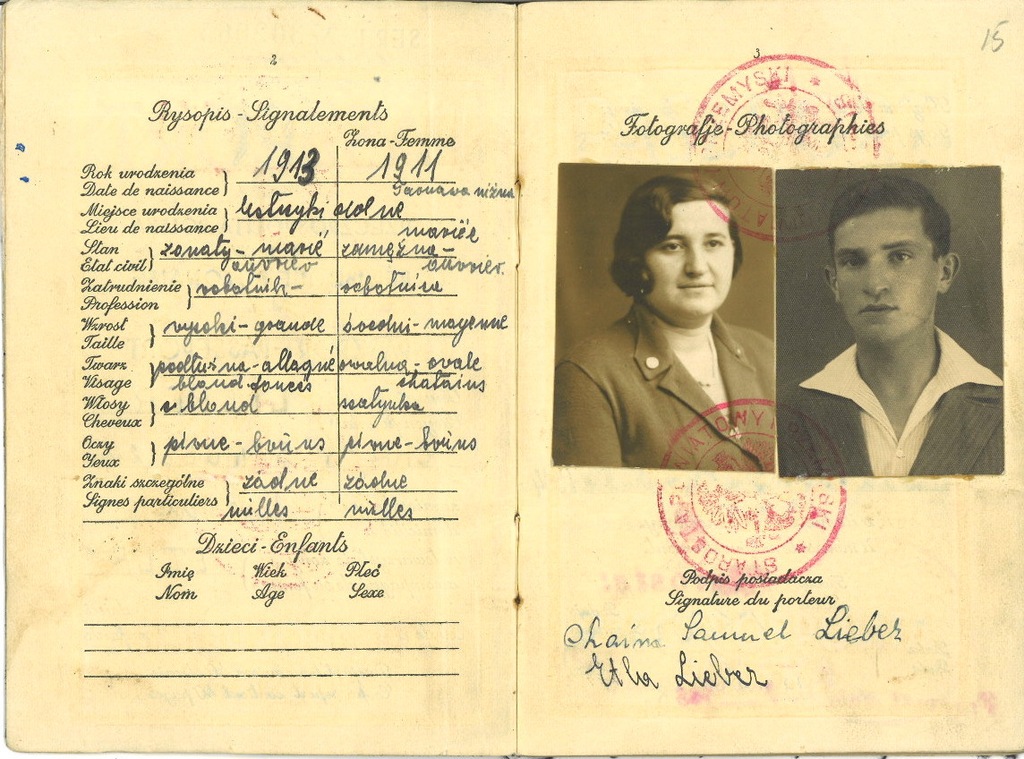 2
Rysopis - Signalements
Żona-Femme
Rok urodzenia
Date de naissance
1913
1911
Miejsce urodzenia
Lieu de naissance
dolne
Stan
Etat civil
żonaty - marié
mariée
zamężna -
Zatrudnienie
Profession
ouvrier
robotnik -
ouvrier.
Wzrost
Taille
wysoki - grande
średni - moyenne
Twarz
Visage
owalna - ovale
Włosy
Cheveux
blond foncés
c. blond
chatains
szatynka
Oczy
Yeux
piwne - bruns
piwne - bruns
Znaki szczególne
Signes particuliers
żadne
żadne
nulles
nulles
Dzieci - Enfants
Imię Wiek Płeć
Nom Age Sexe
3
15
Fotografje - Photographies
Podpis posiadacza
Signature du porteur
Chaim Samuel Lieber
Etla Lieber